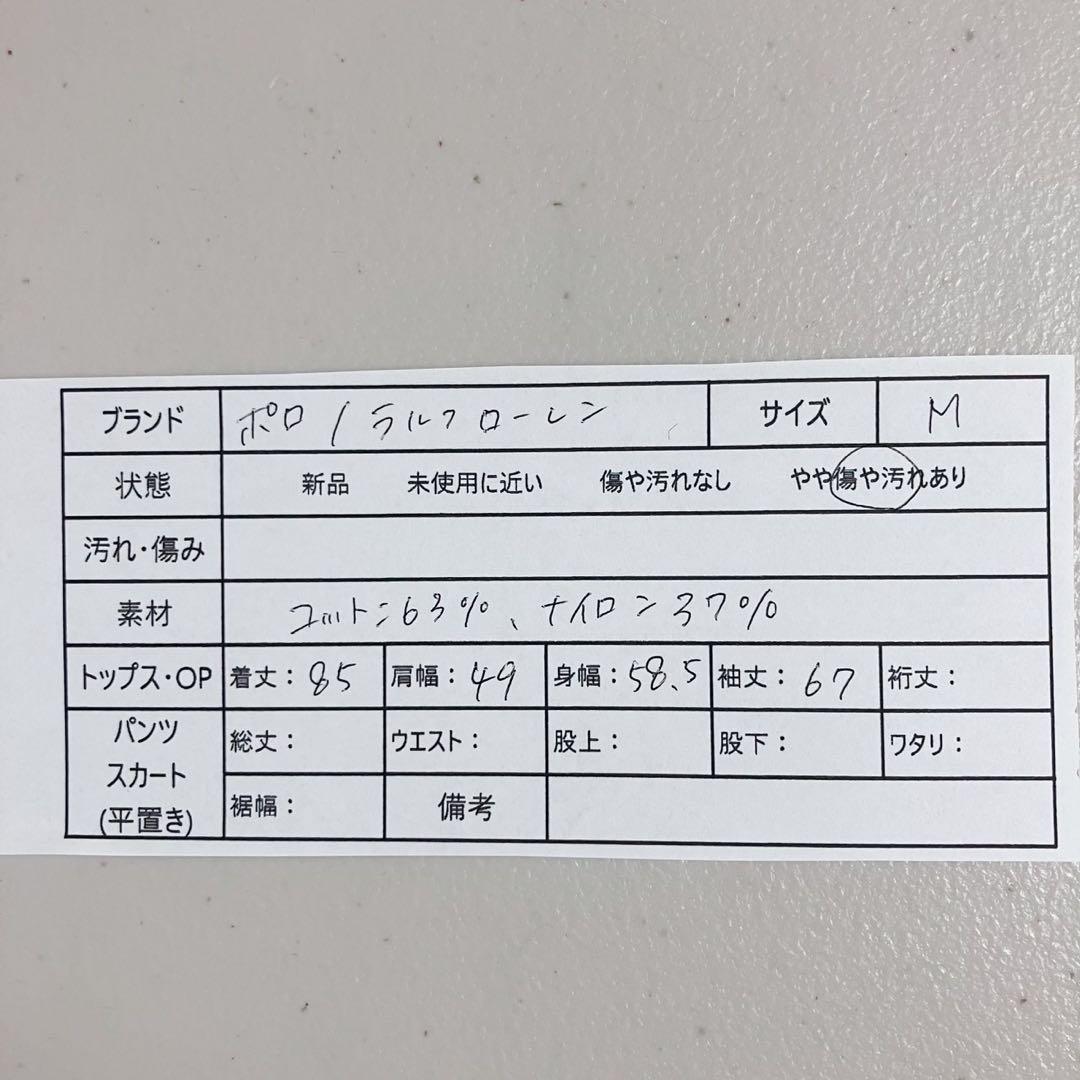 ブランド ポロ / ラルフローレン サイズ M
状態 新品 未使用に近い 傷や汚れなし やや傷や汚れあり
汚れ・傷み
素材 コットン:63%、ナイロン37%
トップス・OP 着丈:85 肩幅:49 身幅:58.5 袖丈:67 裄丈:
パンツ スカート (平置き) 総丈: ウエスト: 股上: 股下: ワタリ:
裾幅: 備考